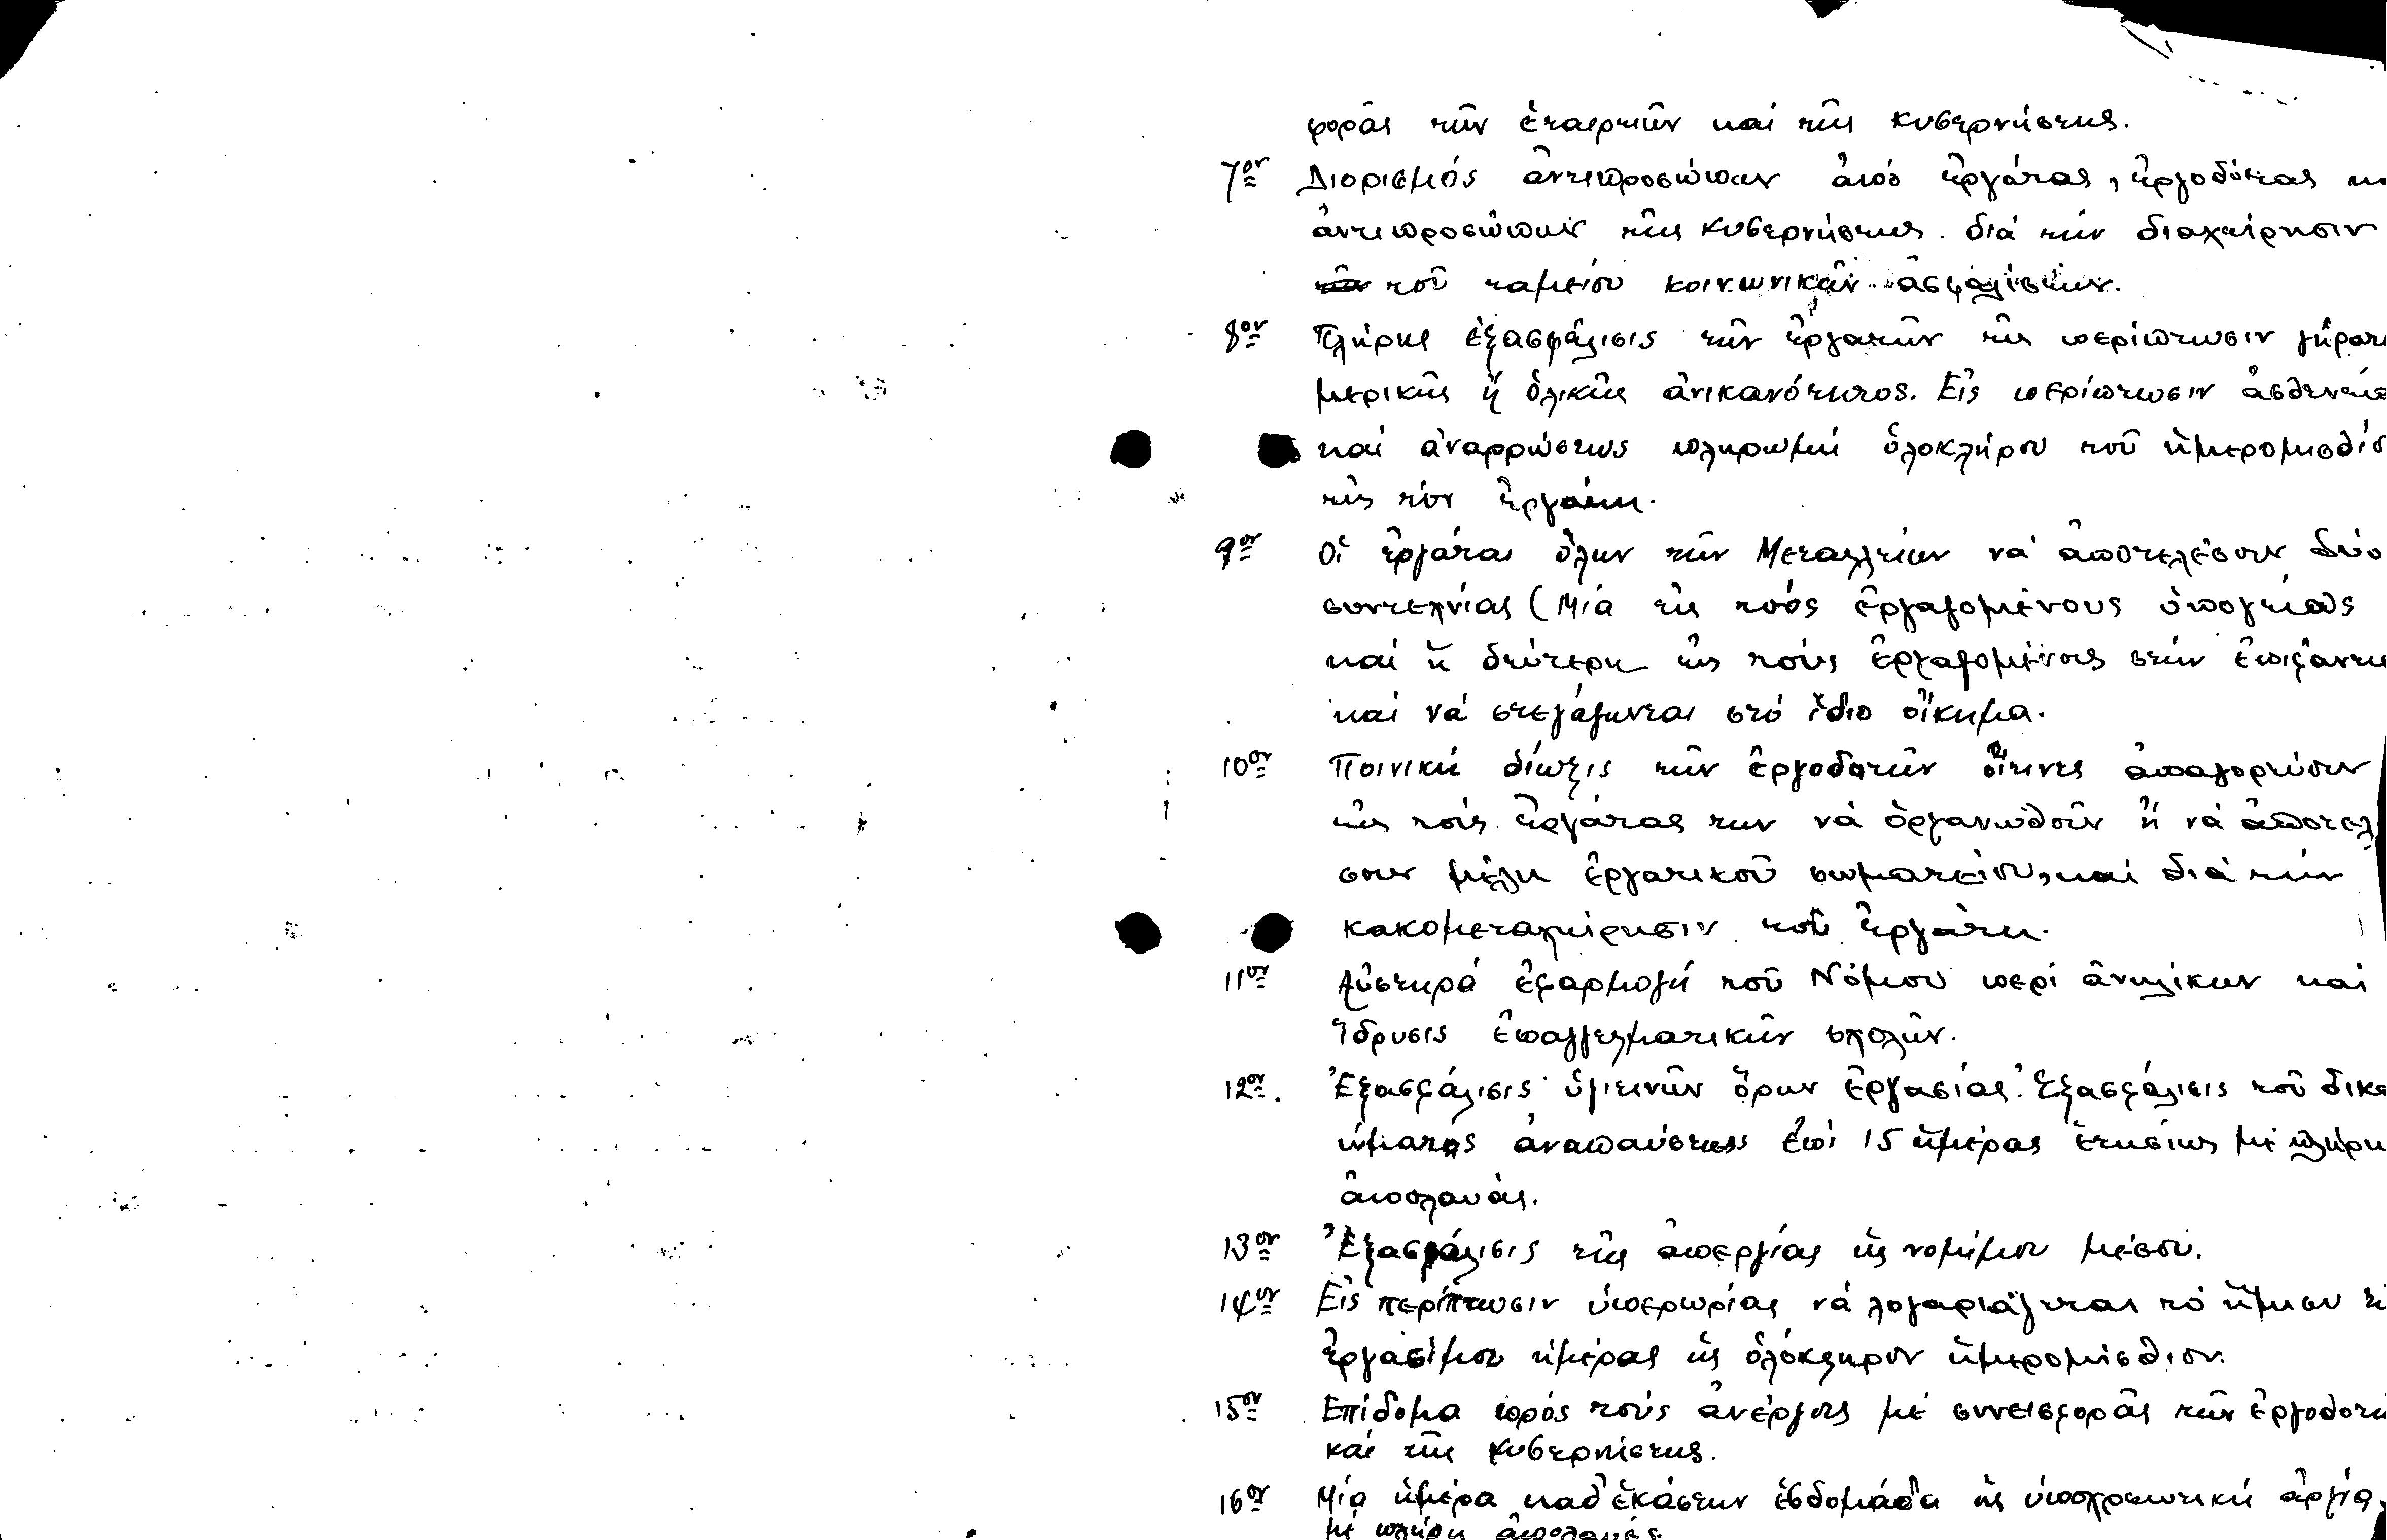 φορᾶς τῶν ἑταιρειῶν καί τῆς κυβερνήσεως.
7ον Διορισμός ἀντιπροσώπων ἀπό ἐργάτας, ἐργοδότας κα
ἀντιπροσώπων τῆς κυβερνήσεως. διά τήν διαχείρησιν
τοῦ ταμείου κοινωνικῶν ἀσφαλίσεων.
8ον Πλήρης ἐξασφάλισις τῶν ἐργατῶν εἰς περίπτωσιν γήρατ
μερικῆς ἤ ὁλικῆς ἀνικανότητος. Εἰς περίπτωσιν ἀσθενεία
καί ἀναρρώσεως πληρωμή ὁλοκλήρου τοῦ ἡμερομισθίο
εἰς τόν ἐργάτη.
9ον Οἱ ἐργάται ὅλων τῶν Μεταλλείων νά ἀποτελέσουν δύο
συντεχνίας (Μιά εἰς τούς ἐργαζομένους ὑπογείως
καί ἡ δεύτερη εἰς τούς ἐργαζομένους στήν ἐπιφάνεια
καί νά στεγάζωνται στό ἴδιο οἴκημα.
10ον Ποινική δίωξις τῶν ἐργοδοτῶν οἵτινες ἀπαγορεύουν
εἰς τούς ἐργάτας των νά ὀργανωθοῦν ἤ νά ἀποτελέ
σουν μέλη ἐργατικοῦ σωματείου, καί διά τήν
κακομεταχείρησιν τοῦ ἐργάτη.
11ον Αὐστηρά ἐφαρμογή τοῦ Νόμου περί ἀνηλίκων καί
ἵδρυσις ἐπαγγελματικῶν σχολῶν.
12ον. Ἐξασφάλισις ὑγιεινῶν ὅρων ἐργασίας. Ἐξασφάλισις τοῦ δικα
ιώματος ἀναπαύσεως ἐπί 15 ἡμέρας ἐτησίως μέ πλήρη
ἀπολαυάς.
13ον Ἐξασφάλισις τῆς ἀπεργίας ὡς νομίμου μέσου.
14ον Εἰς περίπτωσιν ὑπερωρίας νά λογαριάζεται τό ἥμισυ τῆ
ἐργασίμου ἡμέρας ὡς ὁλόκληρον ἡμερομίσθιον.
15ον Επίδομα πρός τούς ἀνέργους μέ συνεισφοράς τῶν ἐργοδοτῶ
καί τῆς κυβερνήσεως.
16ον Μία ἡμέρα καθ' ἑκάστην ἑβδομάδα ὡς ὑποχρεωτική ἀργία,
μέ πλήρη ἀπολαυάς